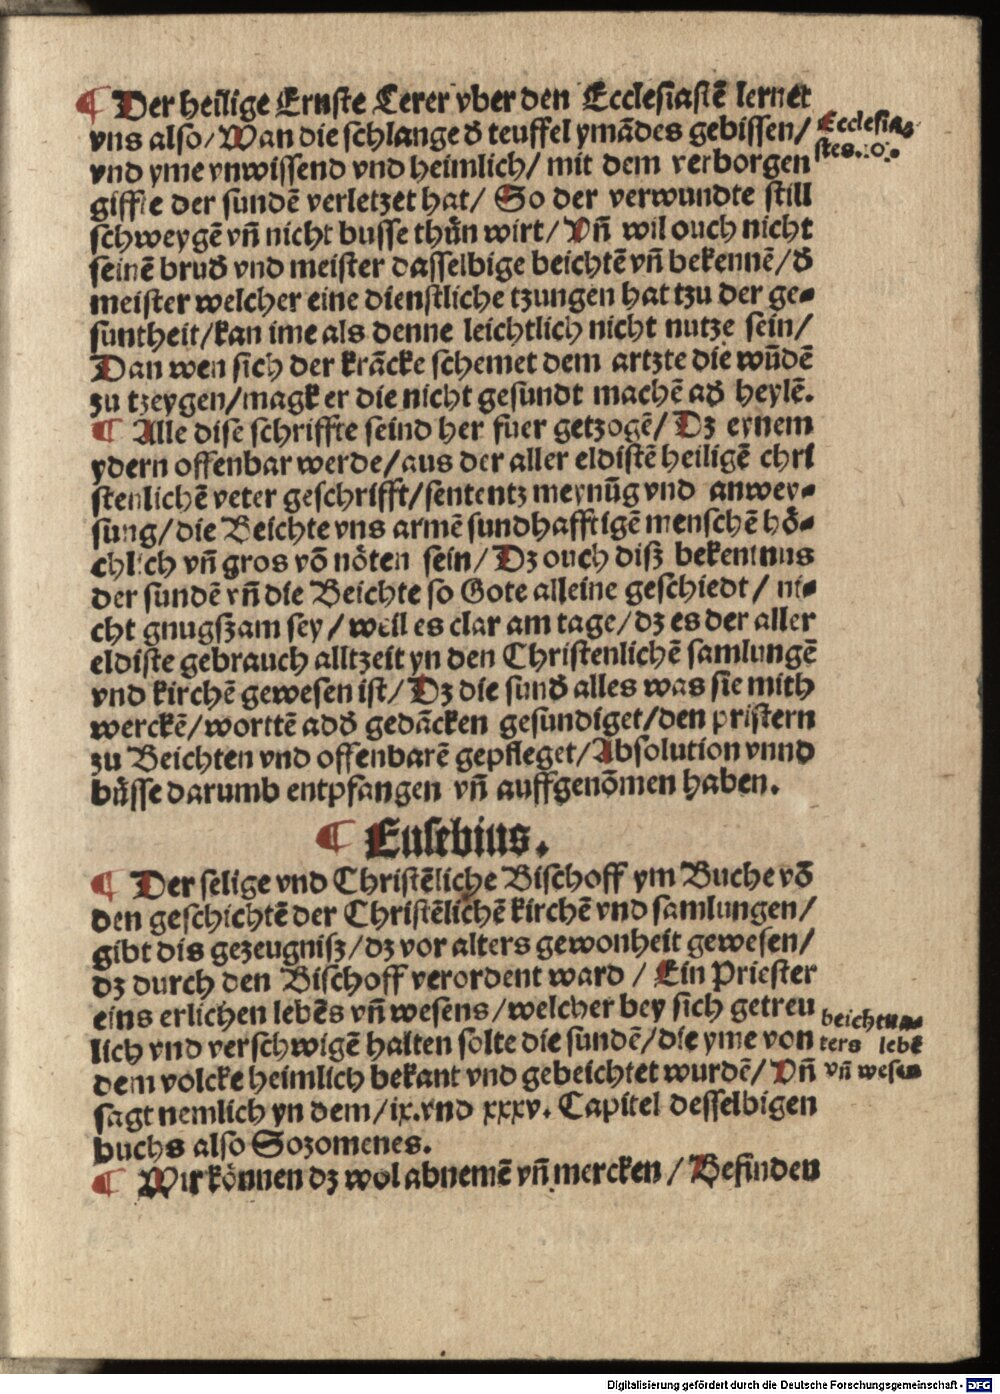 ¶ Der heilige Ernste Lerer vber den Ecclesiastē lernet
vns also/ Wan die schlange d̄ teuffel ymādes gebissen/
vnd yme vnwissend vnd heimlich/ mit dem verborgen
giffte der sundē verletzet hat/ So der verwundte still
schweygē vn̄ nicht busse thůn wirt/ Vn̄ wil ouch nicht
seinē brud̄ vnd meister dasselbige beichtē vn̄ bekennē/ d̄
meister welcher eine dienstliche tzungen hat tzu der ge⸗
suntheit/ kan ime als denne leichtlich nicht nutze sein/
Dan wen sich der krācke schemet dem artzte die wūdē
zu tzeygen/ magk er die nicht gesundt machē ad̄ heylē.
Ecclesias
stes .:o:.
¶ Alle dise schriffte seind her fuer getzogē/ Dz eynem
ydern offenbar werde/ aus der aller eldistē heiligē chri
stenlichē veter geschrifft/ sententz meynūg vnd anwey⸗
sung/ die Beichte vns armē sundhafftigē menschē hö⸗
chlich vn̄ gros vō nöten sein/ Dz ouch diß bekentnus
der sundē vn̄ die Beichte so Gote alleine geschiedt/ ni⸗
cht gnugszam sey/ weil es clar am tage/ dz es der aller
eldiste gebrauch alltzeit yn den Christenlichē samlungē
vnd kirchē gewesen ist/ Dz die sund̄ alles was sie mith
werckē/ worttē add̄ gedācken gesundiget/ den pristern
zu Beichten vnd offenbarē gepfleget/ Absolution vnnd
bůsse darumb entpfangen vn̄ auffgenōmen haben.
¶ Eusebius.
¶ Der selige vnd Christēliche Bischoff ym Buche vō
den geschichtē der Christēlichē kirchē vnd samlungen/
gibt dis gezeugnisz/ dz vor alters gewonheit gewesen/
dz durch den Bischoff verordent ward / Ein Priester
eins erlichen lebēs vn̄ wesens/ welcher bey sich getreu
lich vnd verschwigē halten solte die sundē/ die yme von
dem volcke heimlich bekant vnd gebeichtet wurdē/ Vn̄
sagt nemlich yn dem/ ix. vnd xxxv. Capitel desselbigen
buchs also Sozomenes.
beichtua⸗
ters lebē
vn̄ wesen
¶ Wir können dz wol abnemē vn̄ mercken / Befinden
Digitalisierung gefördert durch die Deutsche Forschungsgemeinschaft - DFG